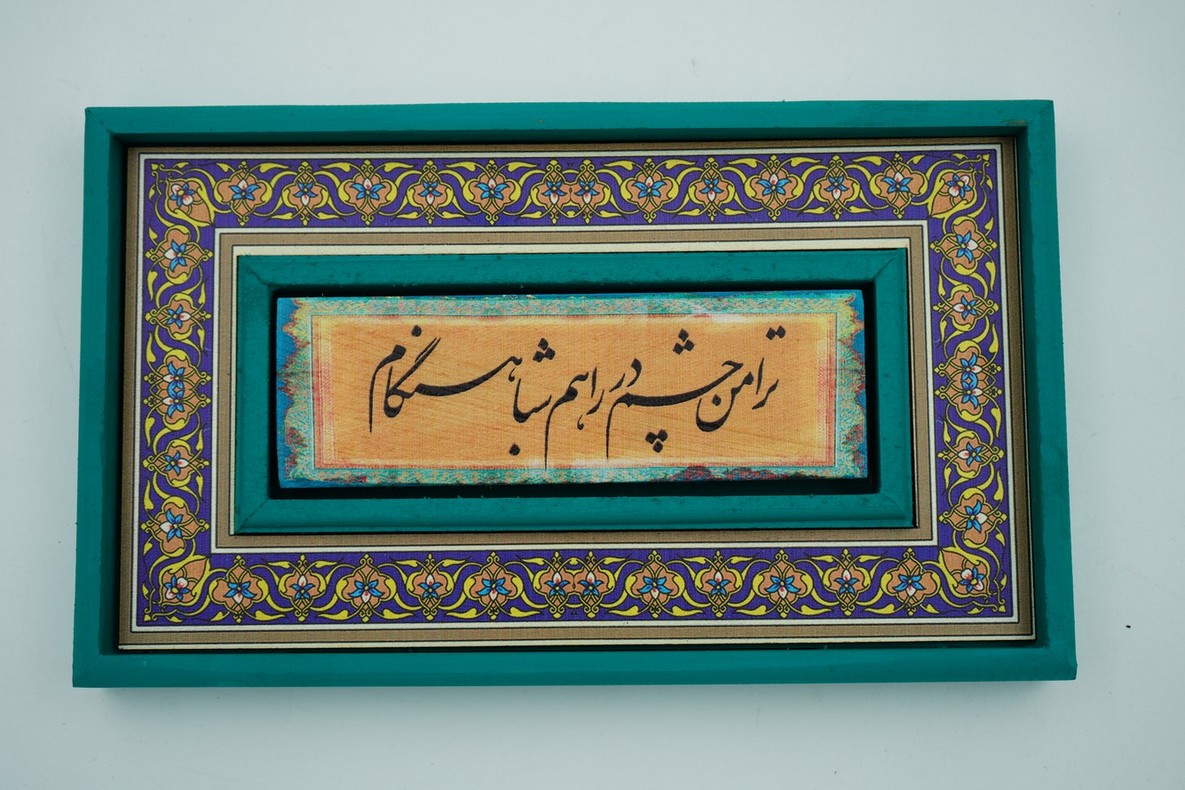 ترا من چشم در راهم شباهنگام